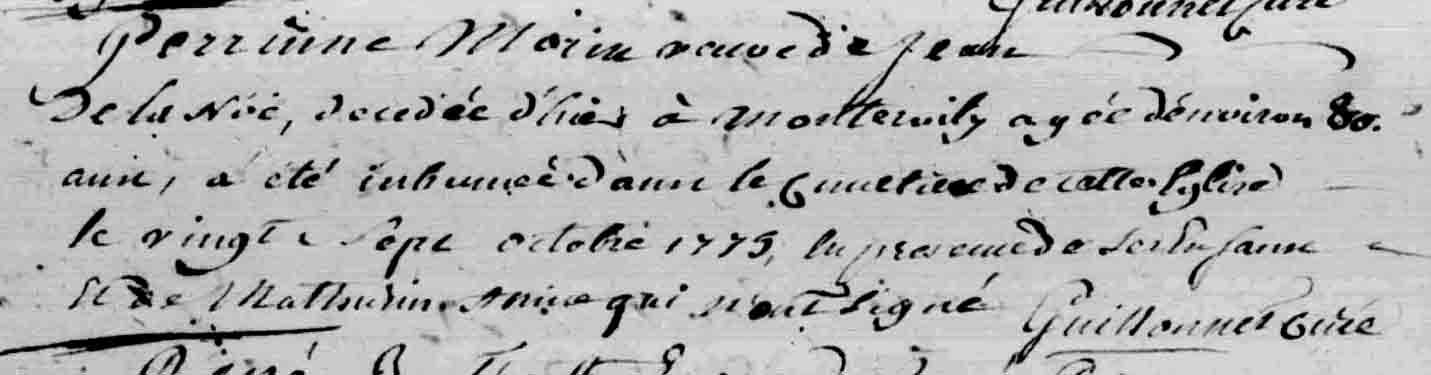 Perrinne Morin veuve de Jean
De la Noë, decedée d'hier à Montervily agée d'environ 80.
ans, a été inhumée dans le Cimetiere de cette Eglise
le vingt Sept octobre 1775, En presence de ses Enfans
Et de Mathurin qui n'ont signé Guillonnet Curé